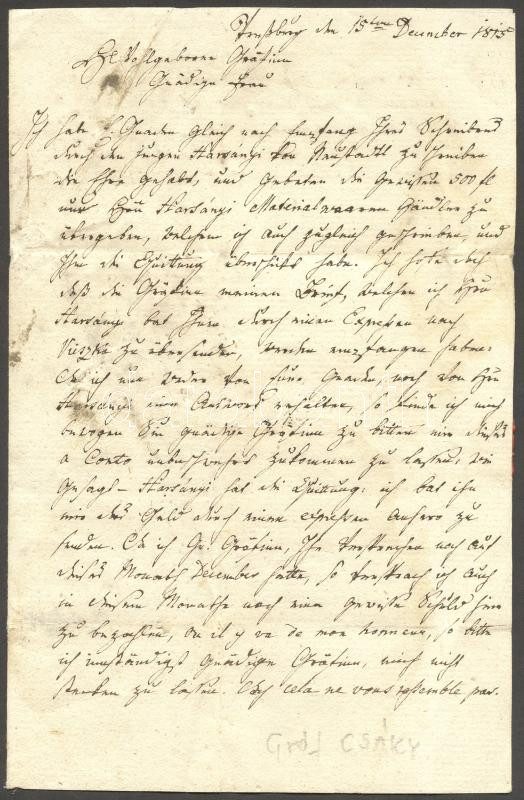 Preßburg den 15ten December 1815
Hochwohlgeborne Gräfinn
Gnädige Frau
Ich habe E. Gnaden gleich nach Empfang Ihres Schreibens
durch den jungen Harsányi von Neustadtl zu schreiben
die Ehre gehabt, und gebeten die gewissen 500 fl
nur Herrn Harsányi Materialwaaren Händler zu
übergeben, welchem ich auch zugleich geschrieben, und
Ihm die Quittung überschickt habe. Ich hoffe doch
daß die Gräfinn meinen Brief, welchen ich Herrn
Harsányi bat Ihnen durch einen Expressen nach
zu übersenden, werden empfangen haben.
Da ich nun weder von Euer Gnaden, noch von Herrn
Harsányi eine Antwort erhalten, so finde ich mich
bewogen Sie gnädige Gräfinn zu bitten mir dieses
a Conto unbeschwehrt zukommen zu lassen; wie
gesagt – Harsányi hat die Quittung; ich bat ihn
mir das Geld durch einen expressen anhero zu
senden. Da ich Gr. Gräfinn, Ihr Versprechen noch auf
dieses Monath December hatte, so versprach ich auch
in diesem Monathe noch eine gewisse Schuld hier
zu bezahlen, où il y va de mon honneur, so bitte
ich inständigst gnädige Gräfinn, mich nicht
stecken zu lassen. Car cela ne vous ressemble pas.
Gróf CSÁKY